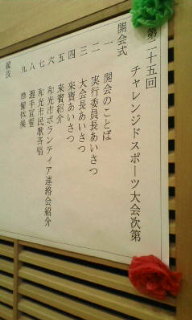 第二十五回
チャレンジドスポーツ大会次第
開会式
一 開会のことば
二 実行委員長あいさつ
三 大会長あいさつ
四 来賓あいさつ
五 来賓紹介
六 和光市ボランティア連絡会紹介
七 和光市民歌斉唱
八 選手宣誓
九 準備体操